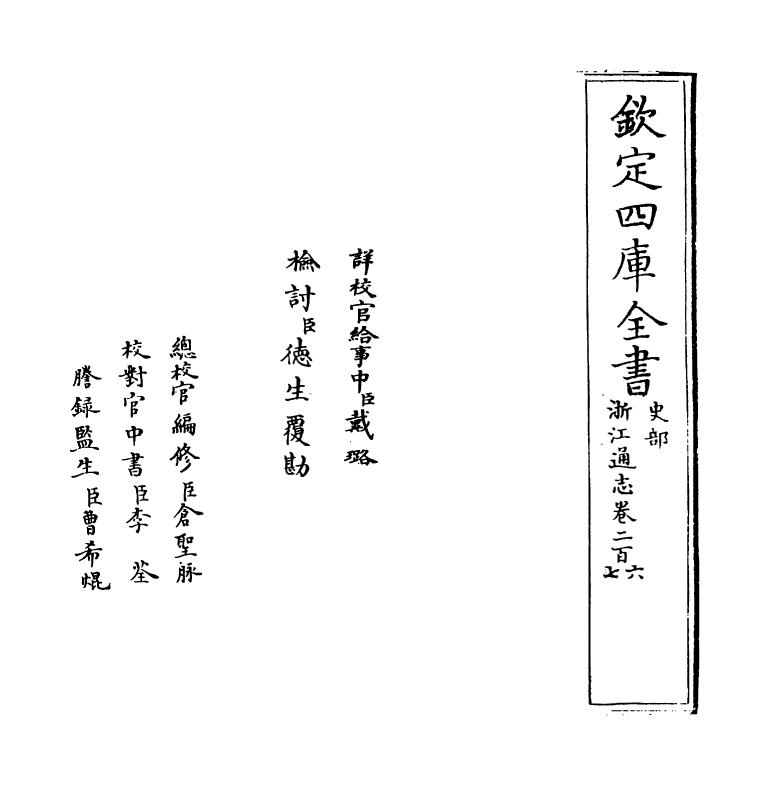 欽定四庫全書
史部
浙江通志卷二百六
七
詳校官給事中臣戴璐
檢討臣德生覆勘
總校官編修臣倉聖脉
校對官中書臣李荃
謄録監生臣曹希焜